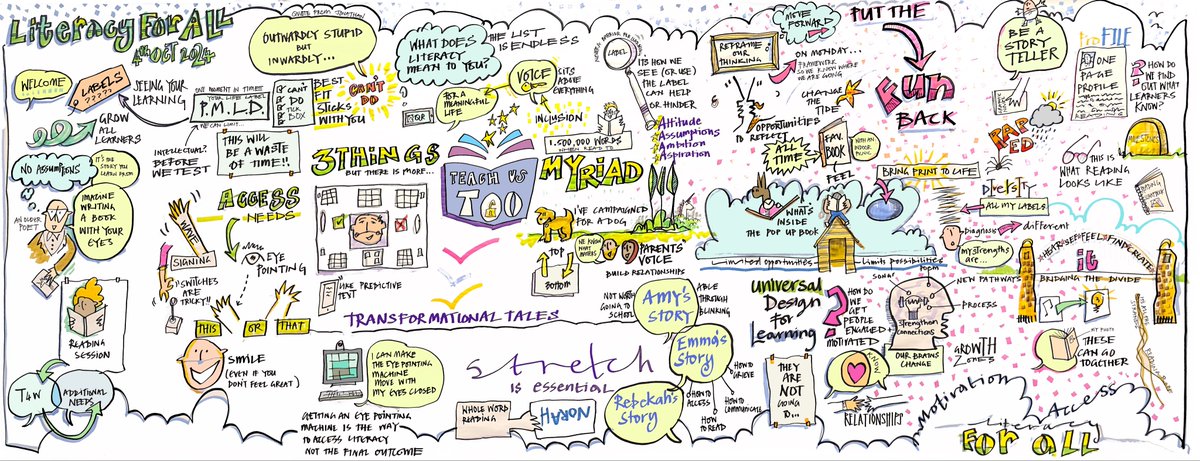 LITERACY FOR ALL
4TH OCT 2024
WELCOME
LABELS
?????
SEEING YOUR
LEARNING
GROW
ALL
LEARNERS
P.M.L.D.
CAN'T
DO
TICK
BOX
INTELLECTUAL?
BEFORE
WE TEST
THIS WILL
BE A WASTE
OF TIME!!
QUOTE FROM JONATHAN
OUTWARDLY STUPID
BUT
INWARDLY...
BEST
FIT
STICKS
WITH YOU
CAN'T
DO
NO ASSUMPTIONS
IT'S THE
STORY YOU
LEARN FROM
IMAGINE
WRITING
A BOOK
WITH YOUR
EYES
AN OLDER
POET
READING
SESSION
T4W
ADDITIONAL
NEEDS
ACCESS
NEEDS
SIGNING
EYE
POINTING
SWITCHES
ARE
TRICKY!!
THIS OR THAT
SMILE
(EVEN IF YOU
DON'T FEEL GREAT)
3 THINGS
BUT THERE IS MORE...
LIKE PREDICTIVE
TEXT
TRANSFORMATIONAL TALES
I CAN MAKE
THE EYE POINTING
MACHINE
MOVE WITH
MY EYES CLOSED
GETTING AN EYE POINTING
MACHINE IS THE WAY
TO ACCESS LITERACY
NOT THE FINAL OUTCOME
WHAT DOES
LITERACY
MEAN TO YOU?
THE LIST
IS ENDLESS
FOR A
MEANINGFUL
LIFE
VOICE
SITS
ABOVE
EVERYTHING
INCLUSION
1,500,000 WORDS
TEACH US
TOO
MYRIAD
I'VE CAMPAIGNED
FOR A DOG
TOP
BOTTOM
WE KNOW
WHAT
MATTERS
PARENTS'
VOICE
BUILD RELATIONSHIPS
stretch
IS essential
WHOLE WORD
READING
NORAH
NOT WORTH
GOING TO
SCHOOL
AMY'S
STORY
ABLE
THROUGH
BLINKING
EMMA'S
STORY
HOW TO
GRIEVE
HOW TO
COMMUNICATE
REBEKAH'S
STORY
HOW TO
ACCESS
HOW
TO READ
LABEL
IT'S HOW WE
SEE (OR USE)
THE LABEL
CAN HELP
OR HINDER
Attitude
Assumptions
Ambition
Aspiration
REFRAME
OUR
THINKING
MOVE
FORWARD
ON MONDAY...
FRAMEWORK
SO WE KNOW WHERE
WE ARE GOING
CHANGE
THE
TIDE
OPPORTUNITIES
TO REFLECT
ALL
TIME
FAV.
BOOK
FEEL
PUT THE
FUN
BACK
BRING PRINT TO LIFE
WHAT'S
INSIDE
THE POP UP BOOK
Limited opportunities
Limits possibilities
SONAR
POEM
Universal
Design
For
Learning
HOW DO
WE GET
PEOPLE
ENGAGED
MOTIVATED
THEY
ARE
NOT
GOING
TO...
KNOW
RELATIONSHIPS
Strengthen
connections
OUR BRAINS
CHANGE
PROCESS
GROWTH
ZONES
BE A
STORY
TELLER
PROFILE
ONE
PAGE
PROFILE
HOW
DO WE
FIND
OUT WHAT
LEARNERS
KNOW?
THIS IS
WHAT READING
LOOKS LIKE
ALL MY LABELS
Diagnosis
different
My strengths
are...
NEW PATHWAYS
HEAR SEE FEEL FIND CRAVE
it
BRIDGING THE DIVIDE
THESE
CAN GO
TOGETHER
Motivation
Access
Literacy
FOR ALL